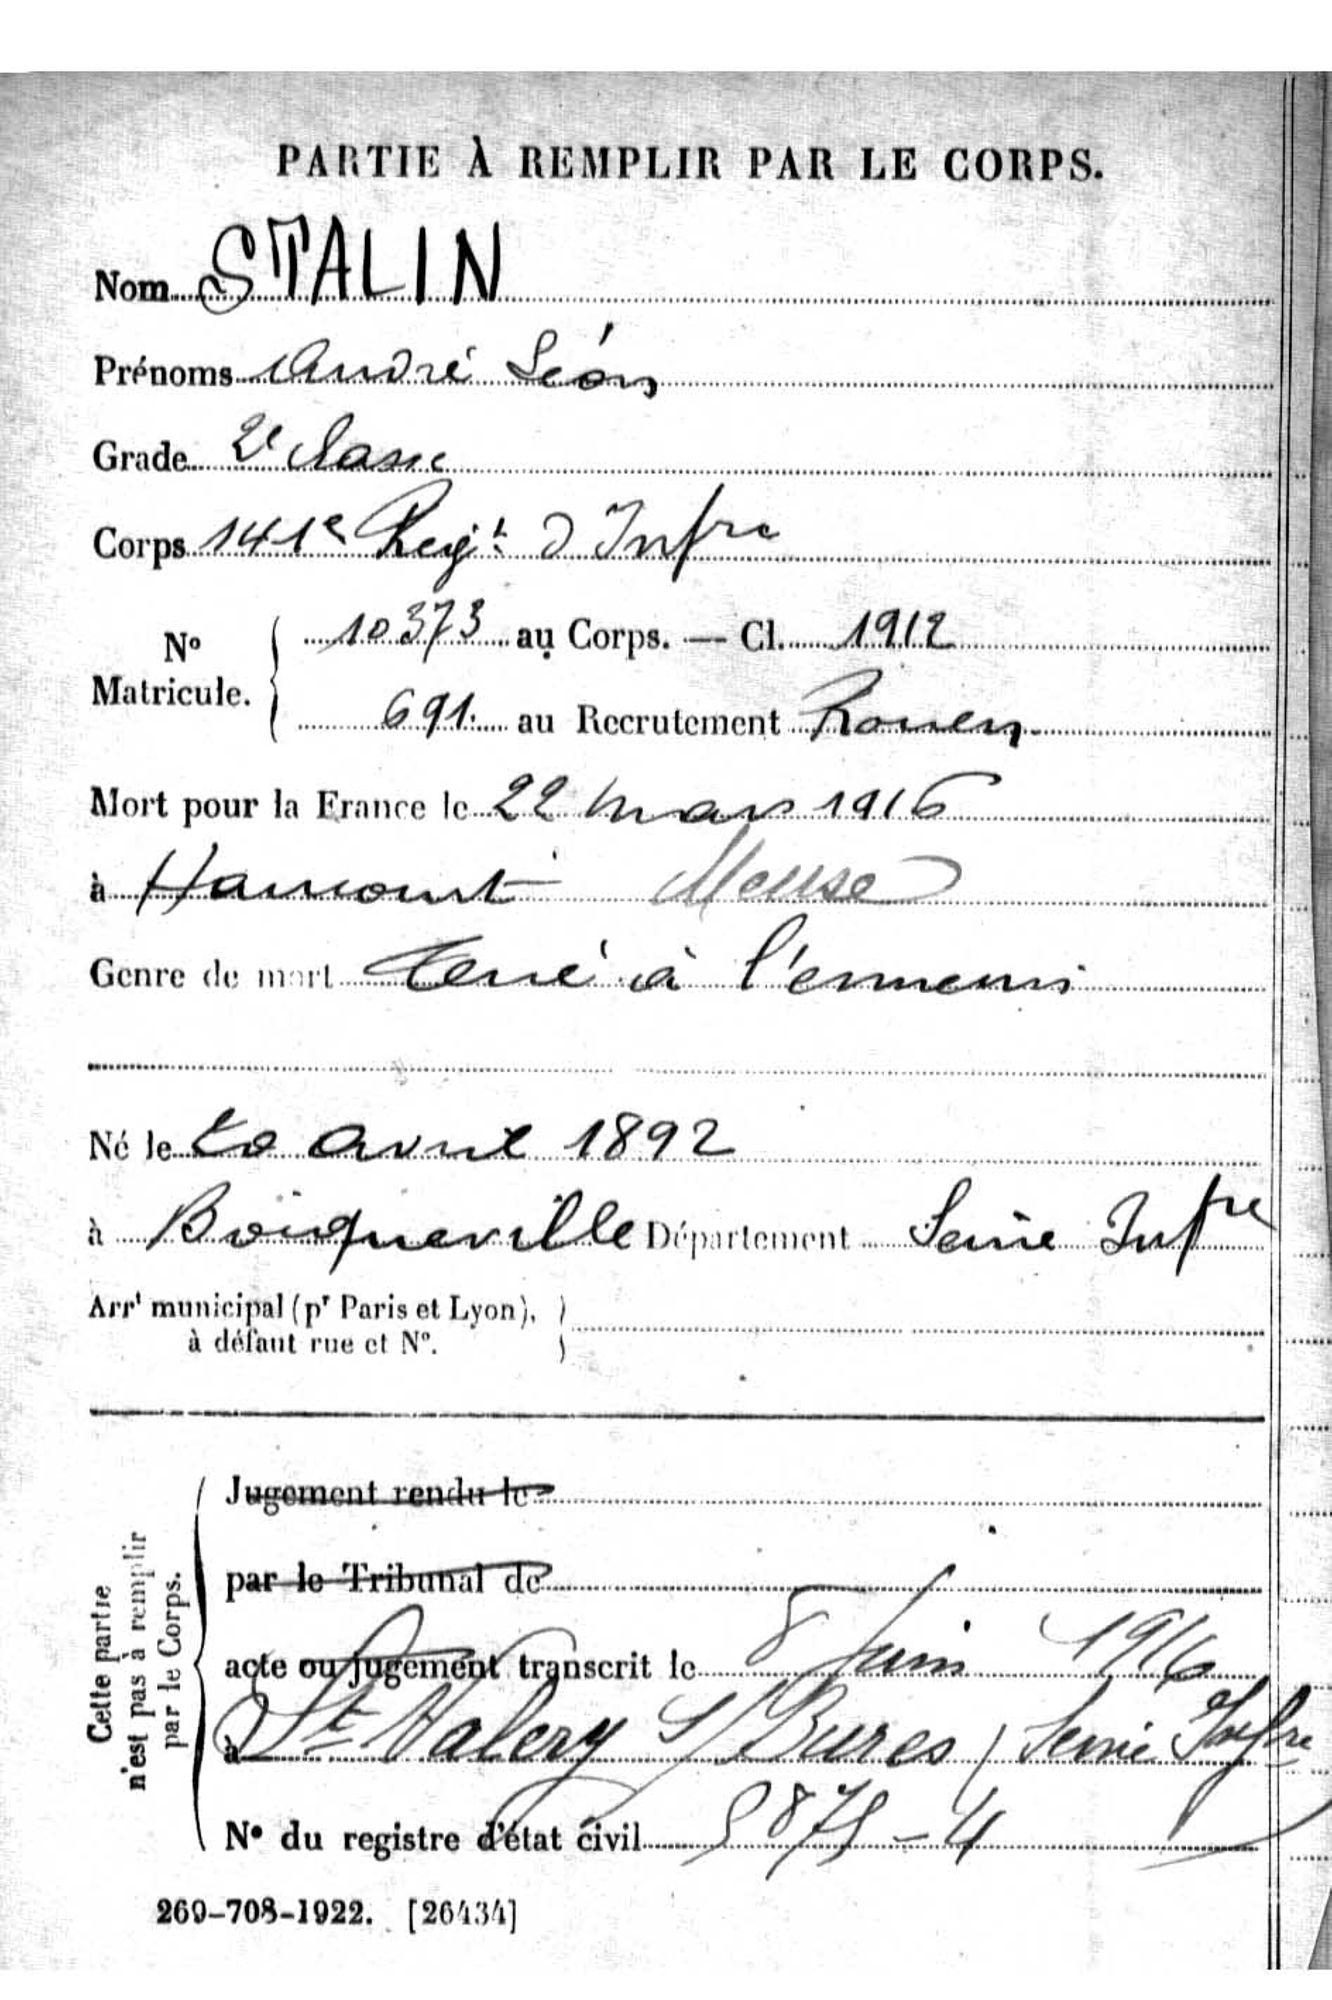 PARTIE À REMPLIR PAR LE CORPS.
Nom STALIN
Prénoms André Léon
Grade 2e classe
Corps 141e Regt d'Infre
No Matricule. 10373 au Corps. — Cl. 1912
691. au Recrutement Rouen
Mort pour la France le 22 mars 1916
à Haucourt Meuse
Genre de mort tué à l'ennemi
Né le 20 avril 1892
à Département Seine Infre
Arrt municipal (pr Paris et Lyon), à défaut rue et No.
Cette partie n'est pas à remplir par le Corps.
Jugement rendu le
par le Tribunal de
acte ou jugement transcrit le 8 Juin 1916
à St Valery s/ Bures (Seine Infre
No du registre d'état civil
269-708-1922. [26434]